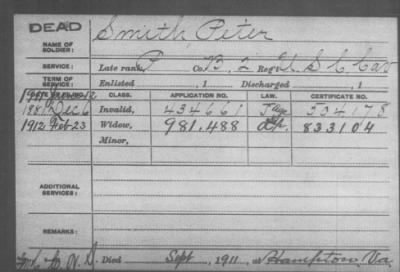 DEAD
Smith Peter
NAME OF SOLDIER:
SERVICE: Late rank P Co. B, 2 Reg't U S C Cav
TERM OF SERVICE: Enlisted , 1 Discharged , 1
DATE OF FILING. CLASS. APPLICATION NO. LAW. CERTIFICATE NO.
Dec 6 Invalid, 434661 534178
1912 Feb-23 Widow, 981,488 833104
Minor,
ADDITIONAL SERVICES:
REMARKS:
Died Sept , 1911, at Hampton Va